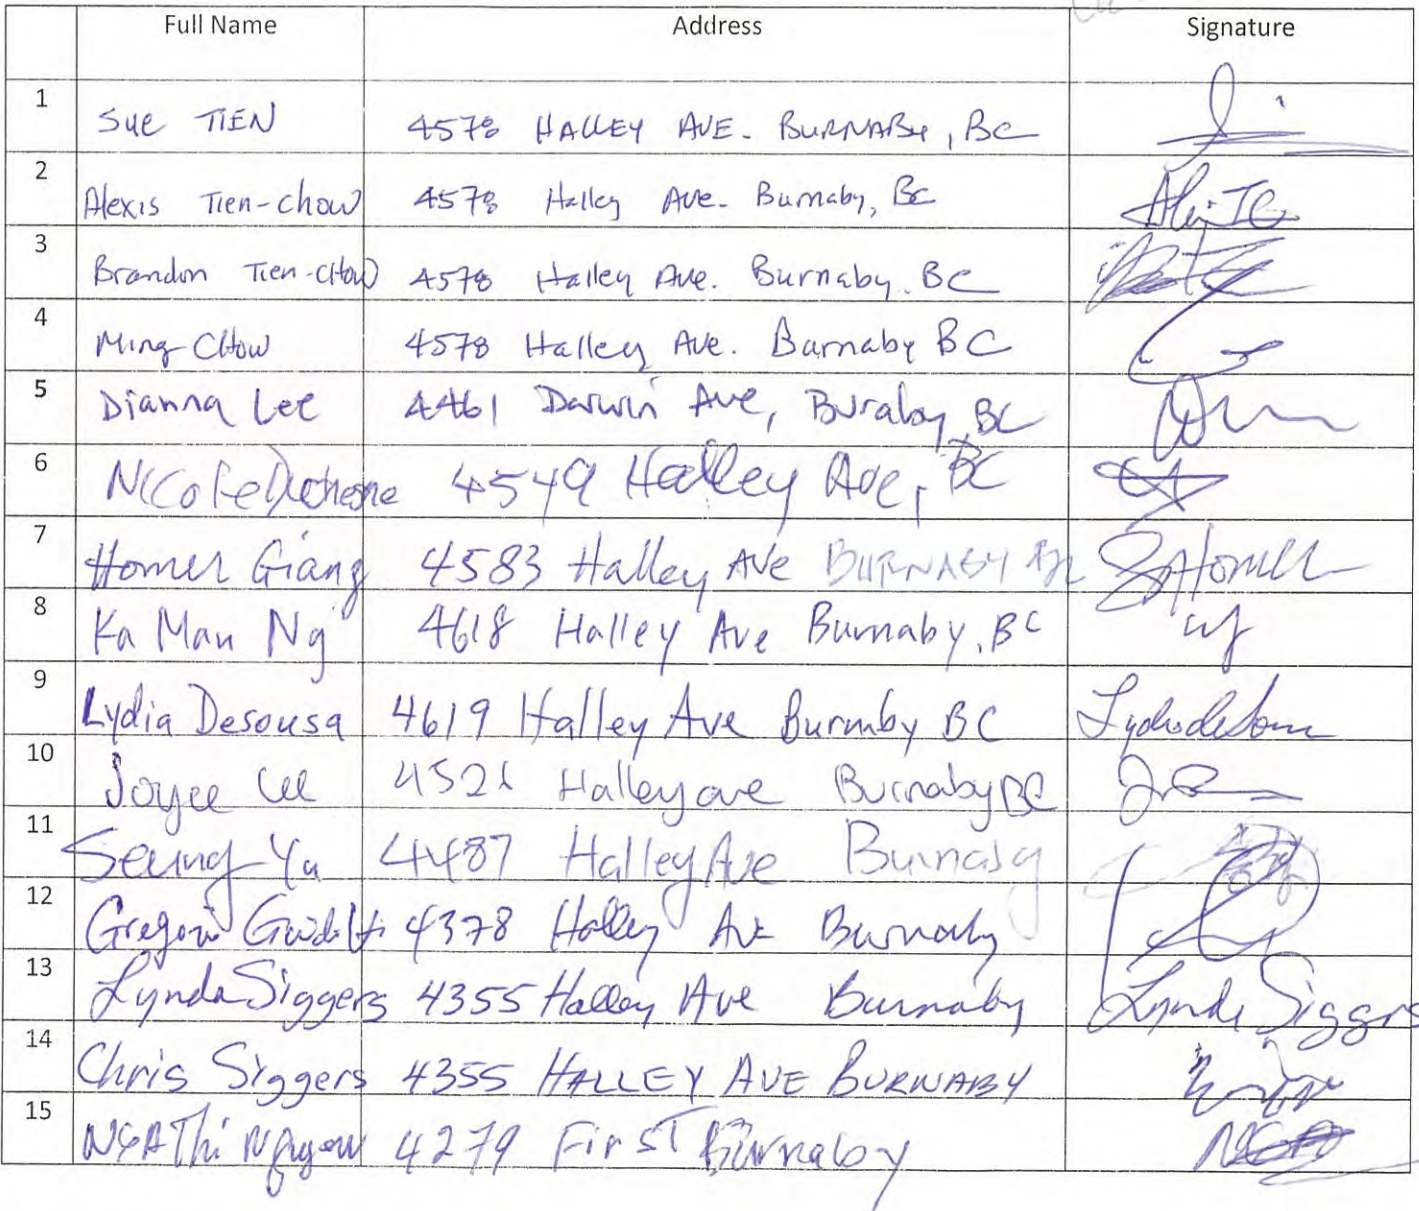 Full Name Address Signature
1 Sue TIEN 4578 HALLEY AVE. BURNABY, BC
2 Alexis Tien-chow 4578 Halley Ave. Burnaby, BC
3 Brandon Tien-CHOW 4578 Halley Ave. Burnaby. BC
4 Ming CHOW 4578 Halley Ave. Burnaby BC
5 Dianna Lee 4461 Darwin Ave, Buraby, BC
6 Nicole 4549 Halley Ave, BC
7 Homer Giang 4583 Halley Ave BURNABY BC Homer
8 Ka Man Ng 4618 Halley Ave Burnaby, BC
9 Lydia Desousa 4619 Halley Ave Burnaby BC Lydia de Sousa
10 Joyce Lee Halley ave Burnaby BC
11 Seung Yu 4487 Halley Ave Burnaby
12 4378 Halley Ave Burnaby
13 Lynda Siggers 4355 Halley Ave Burnaby Lynda Siggers
14 Chris Siggers 4355 HALLEY AVE BURNABY
15 Thi 4279 First Burnaby